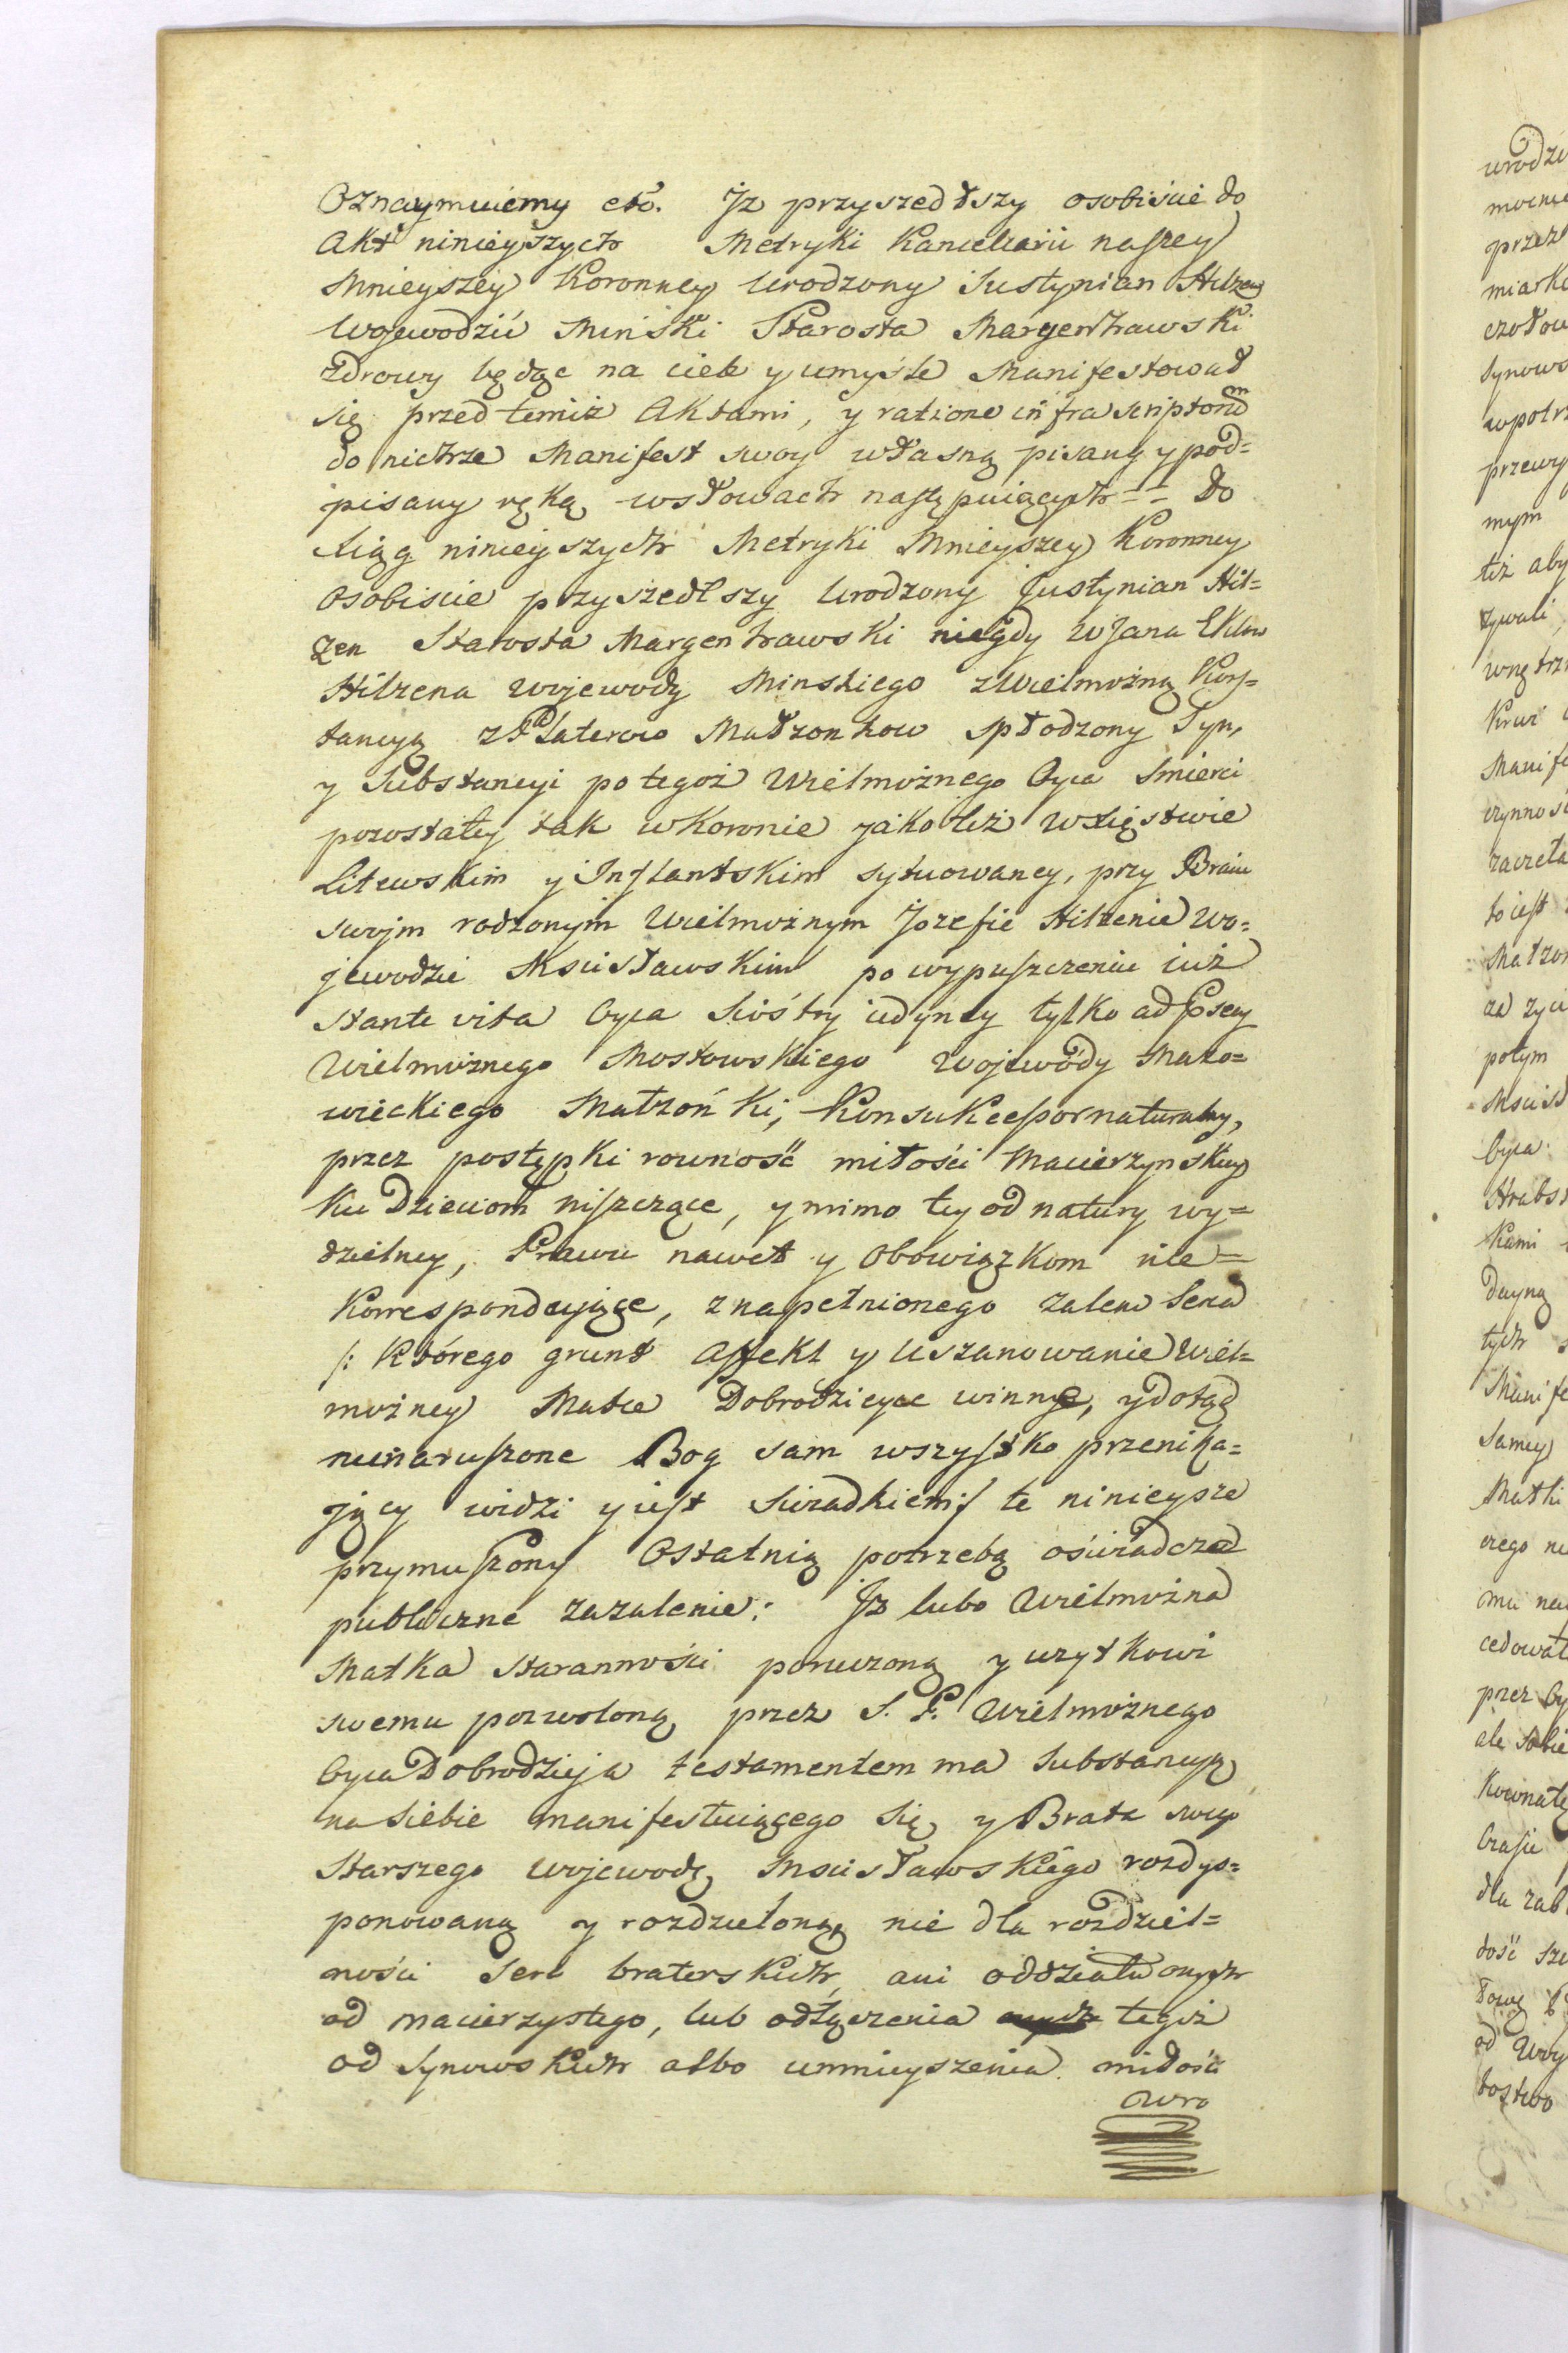 Oznaymuiemy etc. Jż przyszedłszy osobiscie do
Akt ninieyszych Metryki Kancellarii naszey
Mnieyszey Koronney Urodzony Justynian Hilzen
Wojewodzic Minski Starosta Margenhawski
zdrowy będąc na ciele y umyśle Manifestował
się przed temiż Aktami, y ratione infra scriptorum
do nichże Manifest swoy własną pisany y pod=
pisany ręką w słowach następuiących == Do
Xiąg ninieyszych Metryki Mnieyszey Koronney
Osobiscie przyszedlszy Urodzony Justynian Hil=
zen Starosta Margenhawski niegdy W Jana
Hilzena Wojewody Minskiego z Wielmożną Kons=
tancyą z Platerow Małżonkow spłodzony Syn,
y Substancyi po tegoż Wielmożnego Oyca Smierci
pozostałey tak w Koronie jako też w Xięstwie
Litewskim y Inflantskim sytuowaney, przy Bracie
swojm rodzonym Wielmożnym Jozefie Hilzenie Wo=
jewodzie Mscisławskim po wypuszczeniu iuż
stante vita Oyca Siostry iedyney tylko ad
Wielmożnego Mostowskiego Wojewody Mazo=
wieckiego Małżonki, Konsukcessor naturalny,
przez postępki rowność miłości Macierzynskiey
ku Dzieciom niszczące, y mimo tey od natury wy=
dzielney, Prawu nawet y Obowiązkom nie=
korrespondujące, z napełnionego żalem Serca
/: którego grunt Affekt y Uszanowanie Wiel=
możney Matce Dobrodzieyce winnye, y dotąd
nienaruszone Bog sam wszystko przenika=
jący widzi y iest Swiadkiem :/ te ninieysze
przymuszony Ostatnią potrzebą oświadcza
publiczne zażalenie: Jż lubo Wielmożna
Matka staranności poruczoną y użytkowi
swemu pozwoloną przez S. P. Wielmożnego
Oyca Dobrodzieja testamentem ma Substancyą
na siebie manifestuiącego się y Brata swego
Starszego Wojewodę Mscisławskiego rozdys=
ponowaną y rozdzieloną, nie dla rozdziel=
ności Serc braterskich, ani oddziału onych
od macierzystego, lub odłączenia tegoż
od Synowskich albo umnieyszenia miłości